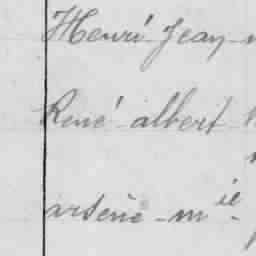 Henri Jean
René albert
arsène mie